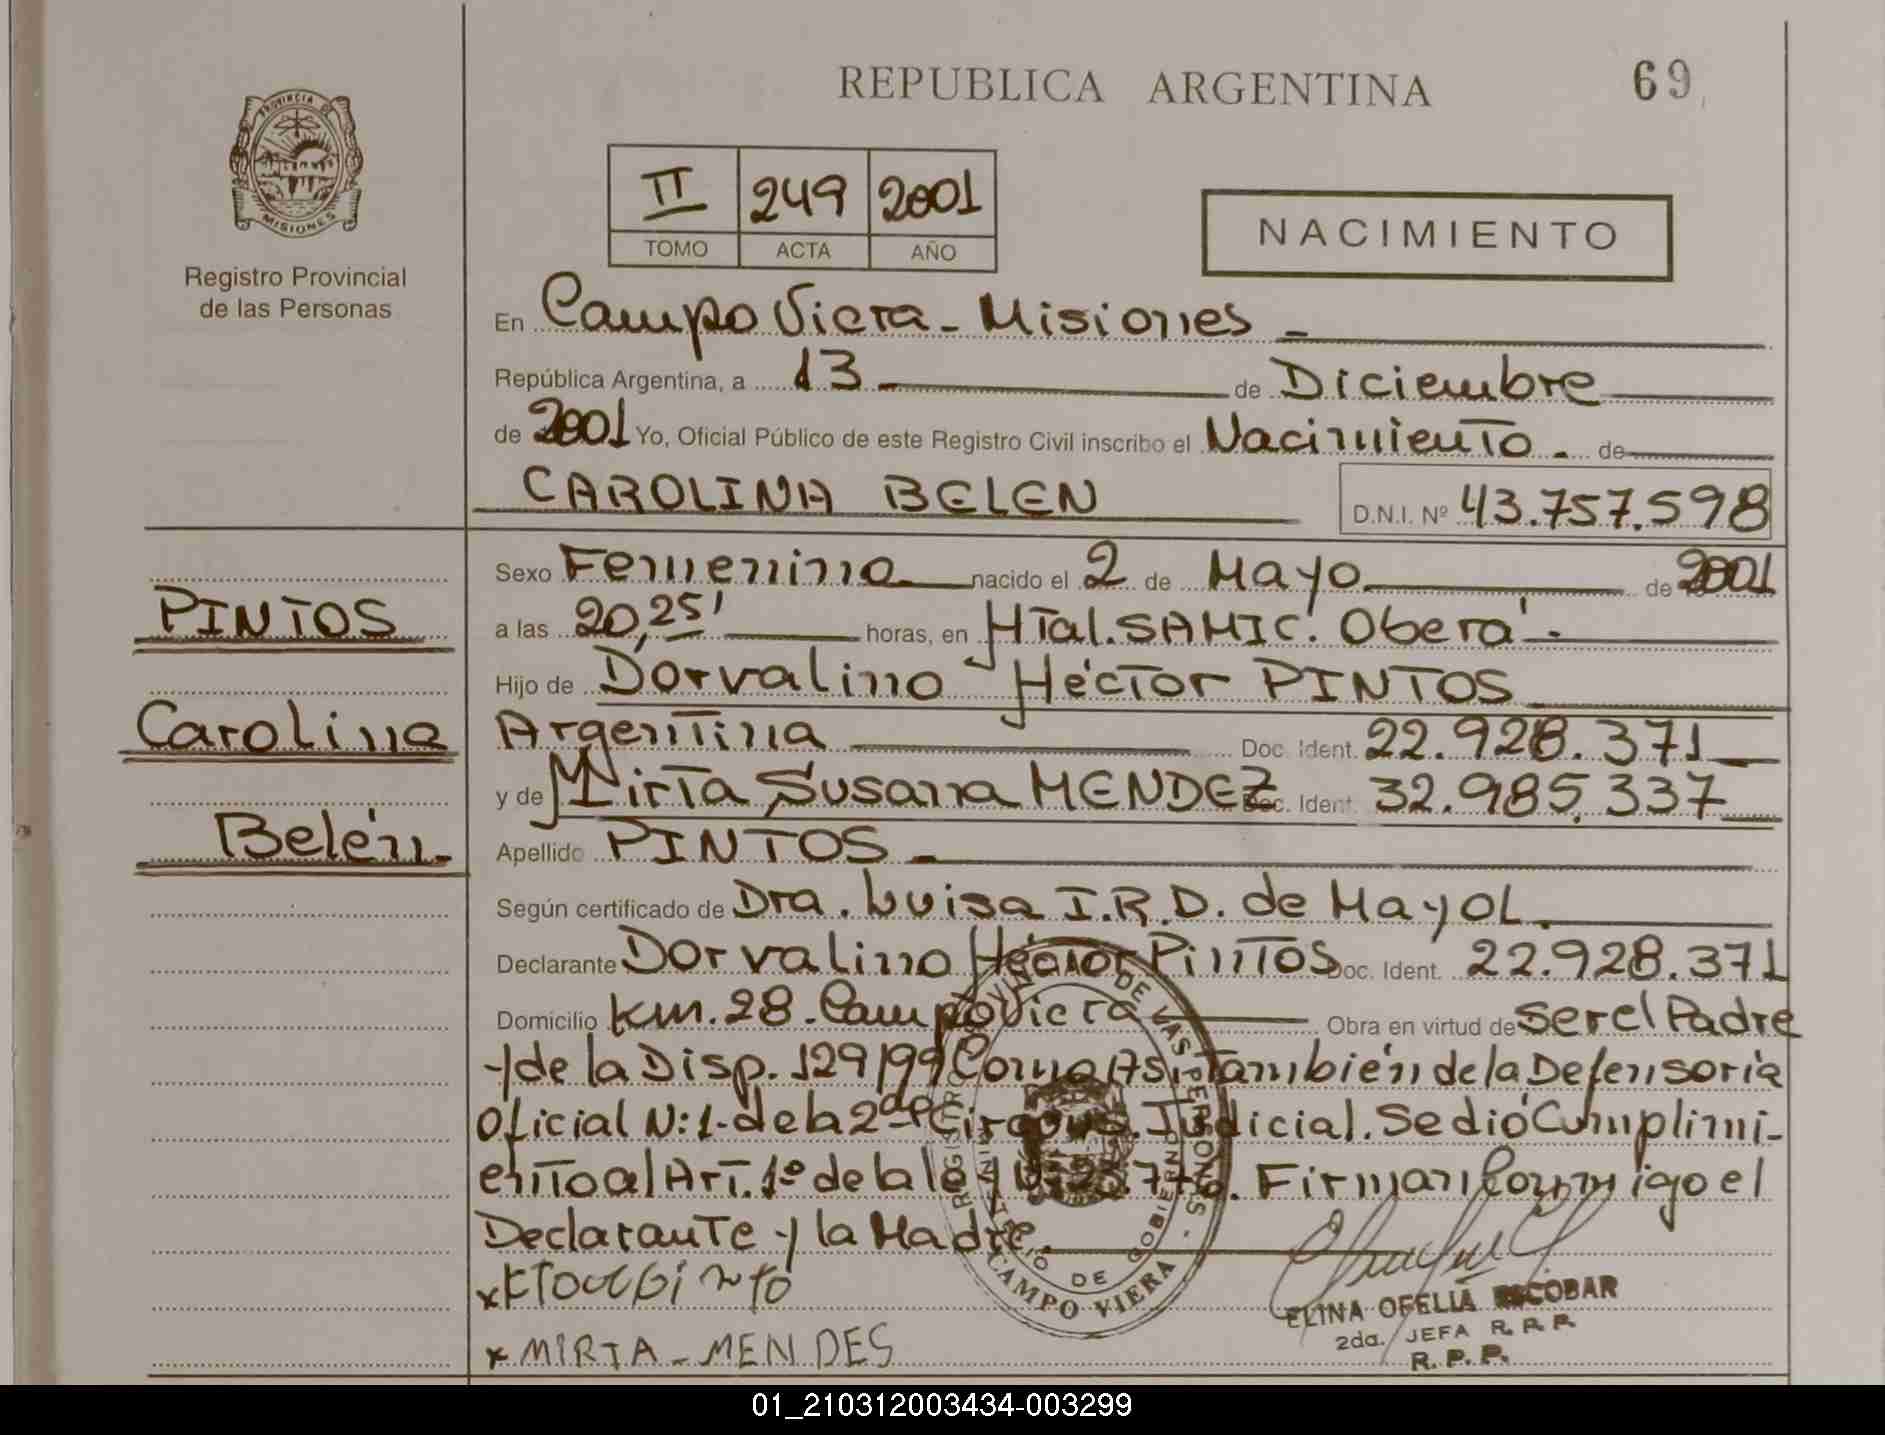 REPUBLICA ARGENTINA
69
PROVINCIA DE
MISIONES
Registro Provincial
de las Personas
II 249 2001
TOMO ACTA AÑO
NACIMIENTO
En Campo Viera - Misiones -
República Argentina, a 13 de Diciembre
de 2001 Yo, Oficial Público de este Registro Civil inscribo el Nacimiento - de
CAROLINA BELEN D.N.I. Nº 43.757.598
Sexo Femenino nacido el 2 de Mayo de 2001
a las 20,25' horas, en HTal. SAMIC. Oberá -
Hijo de Dorvalino Héctor PINTOS
Argentina Doc. Ident. 22.928.371
y de Mirta Susana MENDEZ Doc. Ident. 32.985.337
Apellido PINTOS -
PINTOS
Carolina
Belén.
Según certificado de Dra. Luisa I.R.D. de Mayol.
Declarante Dorvalino Héctor Pintos Doc. Ident. 22.928.371
Domicilio Km. 28. Campo Viera Obra en virtud de ser el Padre
y de la Disp. 129/99 Como Asi También de la Defensoria
Oficial N:1- de la 2da Judicial. Se dió Cumplimi-
ento al Art. 1º de la ley Firman Conmigo el
Declarante y la Madre.
x
x MIRTA - MENDES
REGISTRO PROVINCIAL DE LAS PERSONAS
MINISTERIO DE GOBIERNO
CAMPO VIERA
ELINA OFELIA ESCOBAR
2da. JEFA R.P.P.
R.P.P.
01_210312003434-003299